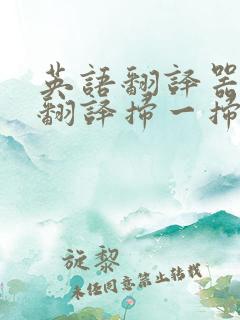 英語翻譯器
翻譯掃一掃
旋黎
未經同意禁止轉載